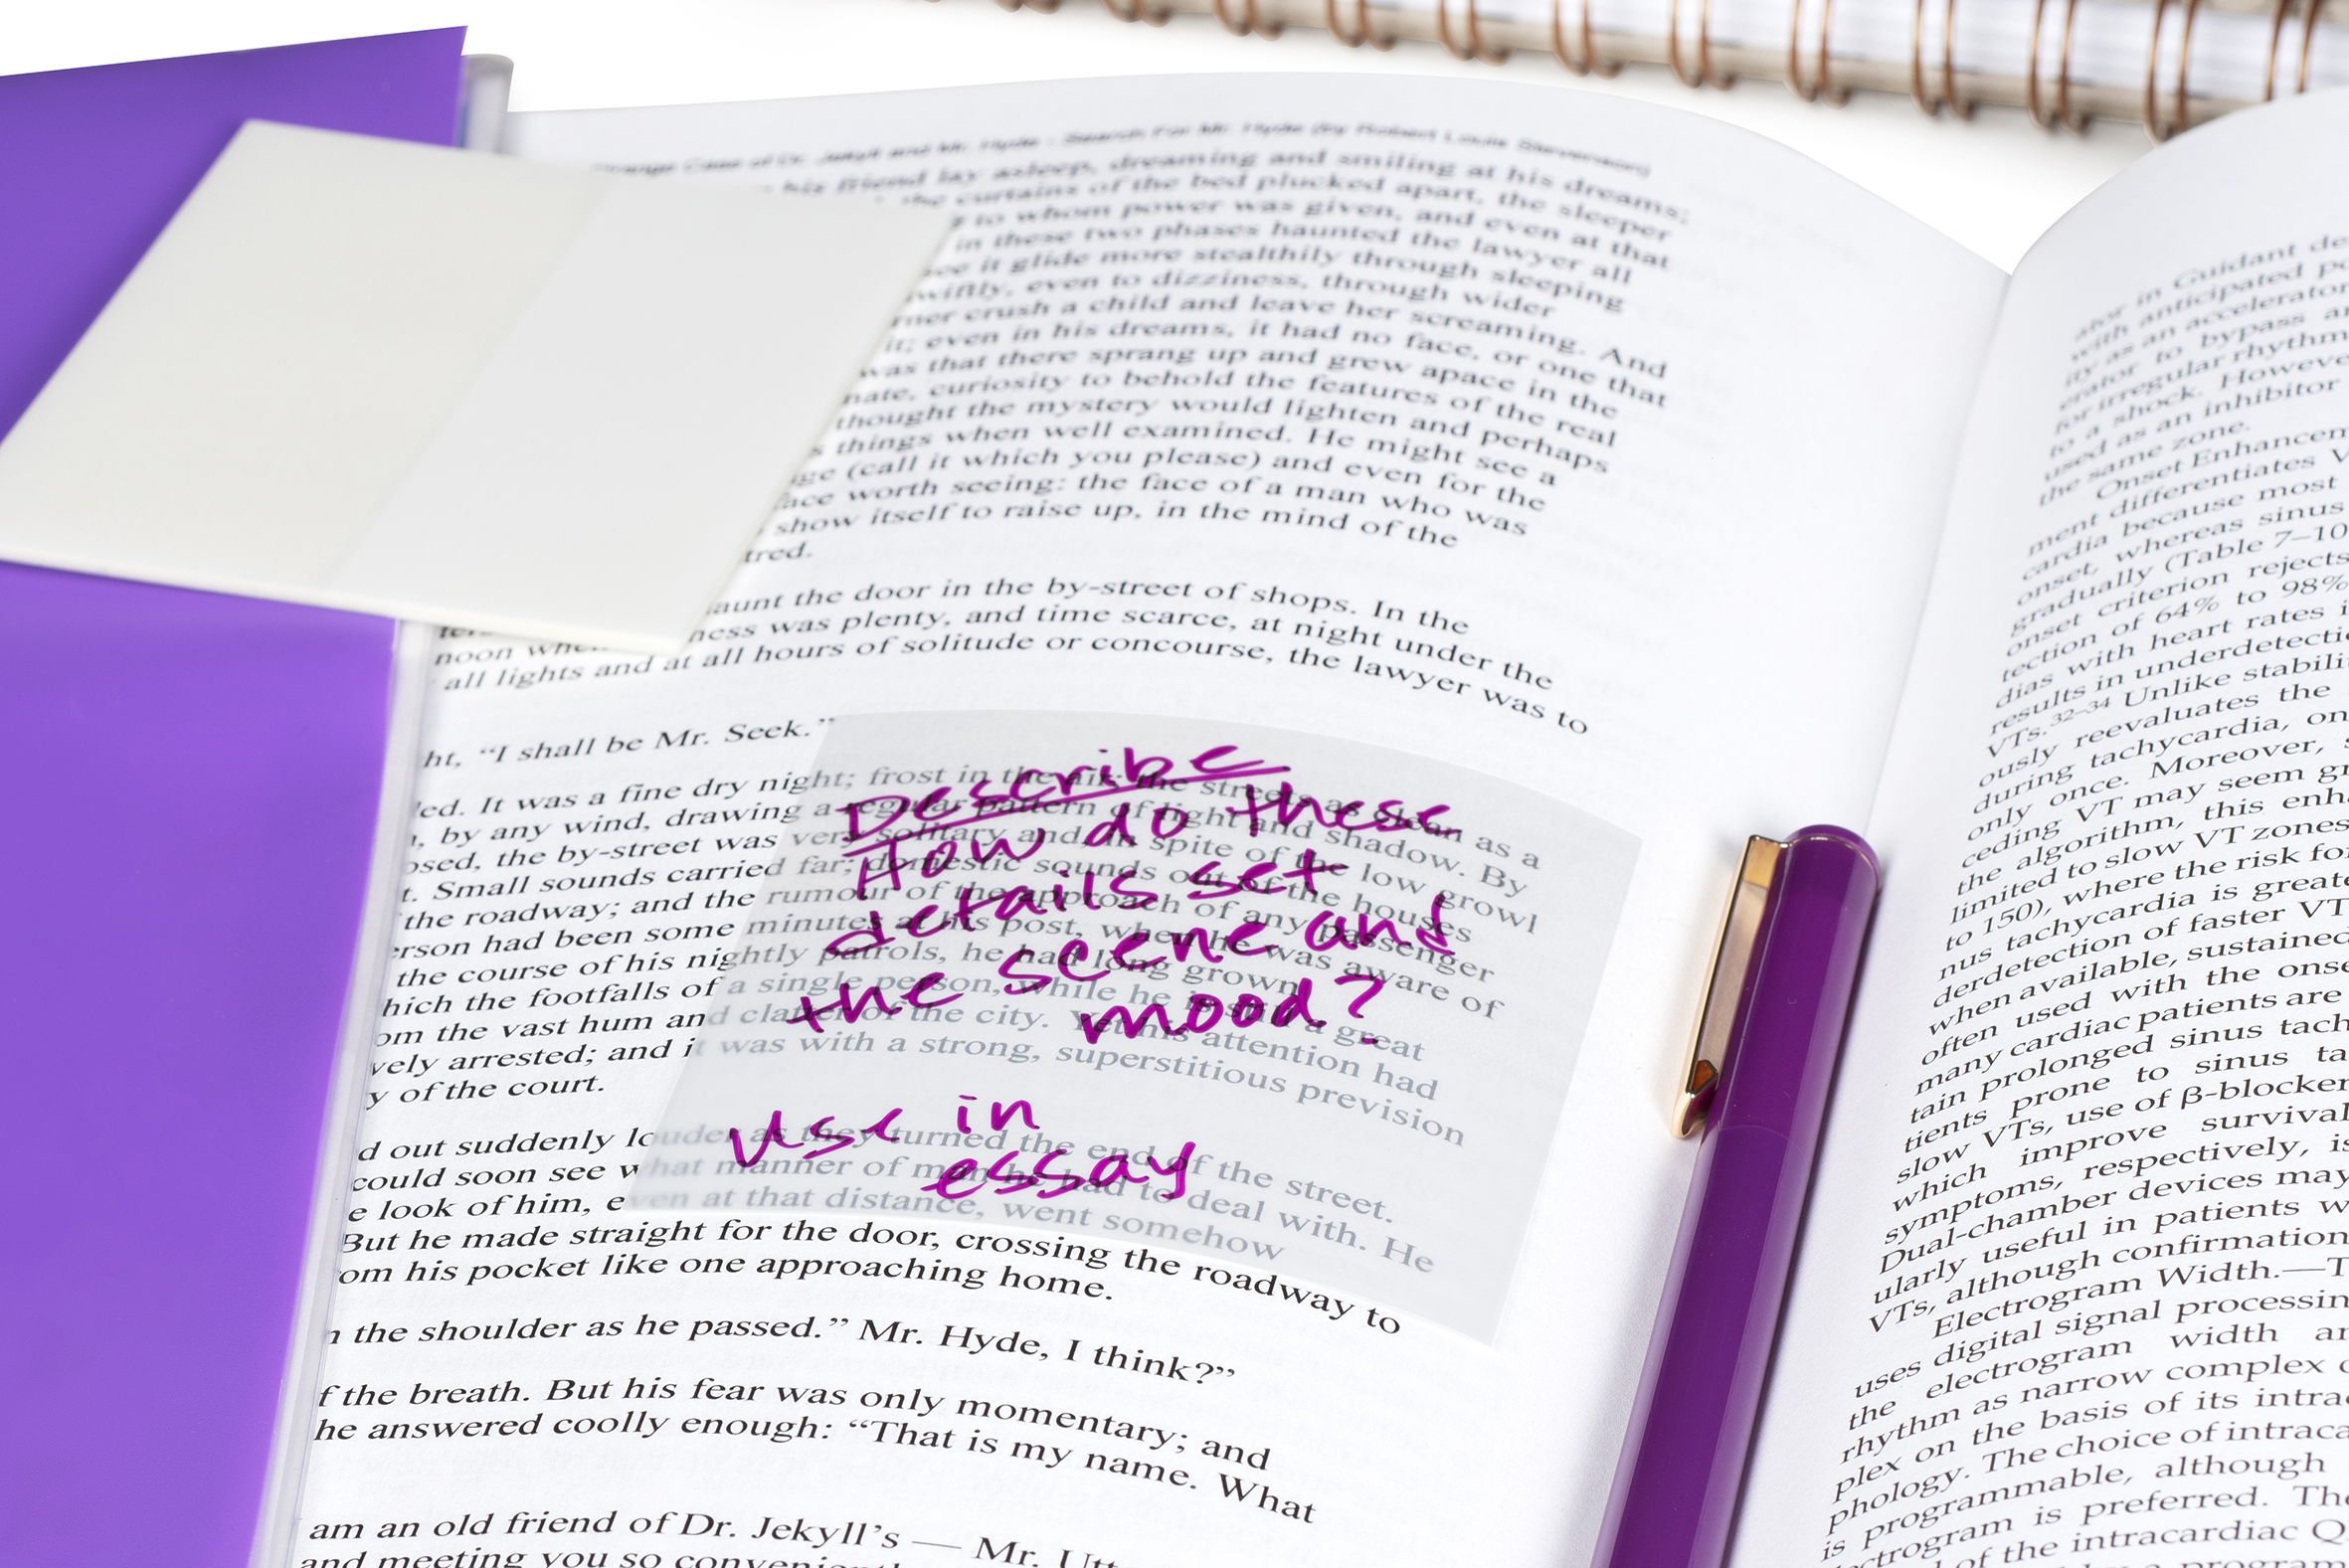 Strange Case of Dr. Jekyll and Mr. Hyde - Search For Mr. Hyde (by Robert Louis Stevenson)
his friend lay asleep, dreaming and smiling at his dreams;
the curtains of the bed plucked apart, the sleeper
to whom power was given, and even at that
in these two phases haunted the lawyer all
see it glide more stealthily through sleeping
wiftly, even to dizziness, through wider
rner crush a child and leave her screaming. And
it; even in his dreams, it had no face, or one that
was that there sprang up and grew apace in the
nate, curiosity to behold the features of the real
thought the mystery would lighten and perhaps
s things when well examined. He might see a
ge (call it which you please) and even for the
face worth seeing: the face of a man who was
show itself to raise up, in the mind of the
tred.
aunt the door in the by-street of shops. In the
noon when ness was plenty, and time scarce, at night under the
all lights and at all hours of solitude or concourse, the lawyer was to
ht, “I shall be Mr. Seek.”
Describe
How do these
details set
the scene and
mood?
use in
essay
ed. It was a fine dry night; frost in the air; the streets as clean as a
, by any wind, drawing a regular pattern of light and shadow. By
osed, the by-street was very solitary and, in spite of the low growl
t. Small sounds carried far; domestic sounds out of the houses
the roadway; and the rumour of the approach of any passenger
erson had been some minutes at his post, when he was aware of
the course of his nightly patrols, he had long grown
hich the footfalls of a single person, while he is still a great
om the vast hum and clatter of the city. Yet his attention had
vely arrested; and it was with a strong, superstitious prevision
y of the court.
d out suddenly louder as they turned the end of the street.
could soon see what manner of man he had to deal with. He
e look of him, even at that distance, went somehow
But he made straight for the door, crossing the roadway to
om his pocket like one approaching home.
n the shoulder as he passed.” Mr. Hyde, I think?”
f the breath. But his fear was only momentary; and
he answered coolly enough: “That is my name. What
am an old friend of Dr. Jekyll’s — Mr. Utt
and meeting you so conveniently
ator in Guidant de
with anticipated po
ity as an accelerator
erator to bypass an
for irregular rhythm
to a shock. Howeve
used as an inhibitor
the same zone.
Onset Enhancem
ment differentiates V
cardia because most
onset, whereas sinus
gradually (Table 7–10
onset criterion rejects
tection of 64% to 98%
dias with heart rates i
results in underdetectio
VTs.32–34 Unlike stabili
ously reevaluates the
during tachycardia, on
only once. Moreover, s
ceding VT may seem gr
the algorithm, this enha
limited to slow VT zones
to 150), where the risk fo
nus tachycardia is greate
derdetection of faster VT
when available, sustained
often used with the onse
many cardiac patients are
tain prolonged sinus tach
tients prone to sinus ta
slow VTs, use of β-blocker
which improve survival
symptoms, respectively, is
Dual-chamber devices may
ularly useful in patients w
VTs, although confirmation
Electrogram Width.—T
uses digital signal processin
the electrogram width an
rhythm as narrow complex o
plex on the basis of its intrac
phology. The choice of intraca
is programmable, although
ectrogram is preferred. The
of the intracardiac Q